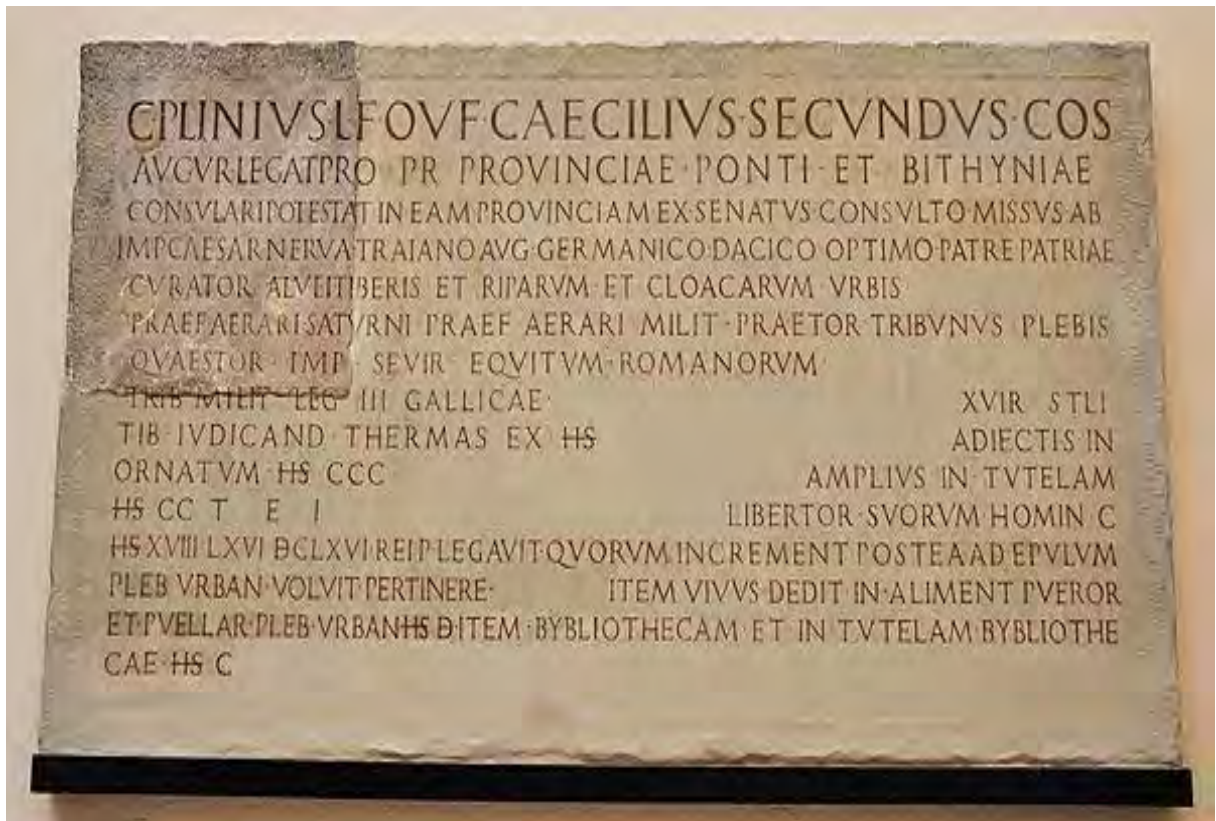 C PLINIVS L F OVF CAECILIVS·SECVNDVS·COS
AVGVR LEGAT PRO PR PROVINCIAE·PONTI·ET BITHYNIAE
CONSVLARI POTESTAT IN EAM PROVINCIAM EX·SENATVS·CONSVLTO·MISSVS·AB
IMP CAESAR NERVA·TRAIANO AVG·GERMANICO·DACICO OPTIMO·PATRE PATRIAE
CVRATOR ALVEI TIBERIS ET RIPARVM ET CLOACARVM VRBIS
PRAEF AERARI SATVRNI PRAEF AERARI MILIT·PRAETOR TRIBVNVS PLEBIS
QVAESTOR IMP SEVIR EQVITVM·ROMANORVM
TRIB MILIT LEG III GALLICAE XVIR STLI
TIB·IVDICAND·THERMAS EX HS ADIECTIS IN
ORNATVM·HS CCC AMPLIVS IN TVTELAM
HS CC T E I LIBERTOR·SVORVM·HOMIN C
HS XVIII LXVI DCLXVI REI P LEGAVIT·QVORVM INCREMENT POSTEA AD EPVLVM
PLEB VRBAN·VOLVIT PERTINERE ITEM VIVVS·DEDIT IN·ALIMENT PVEROR
ET·PVELLAR·PLEB·VRBAN HS D ITEM·BYBLIOTHECAM·ET IN TVTELAM·BYBLIOTHE
CAE·HS C